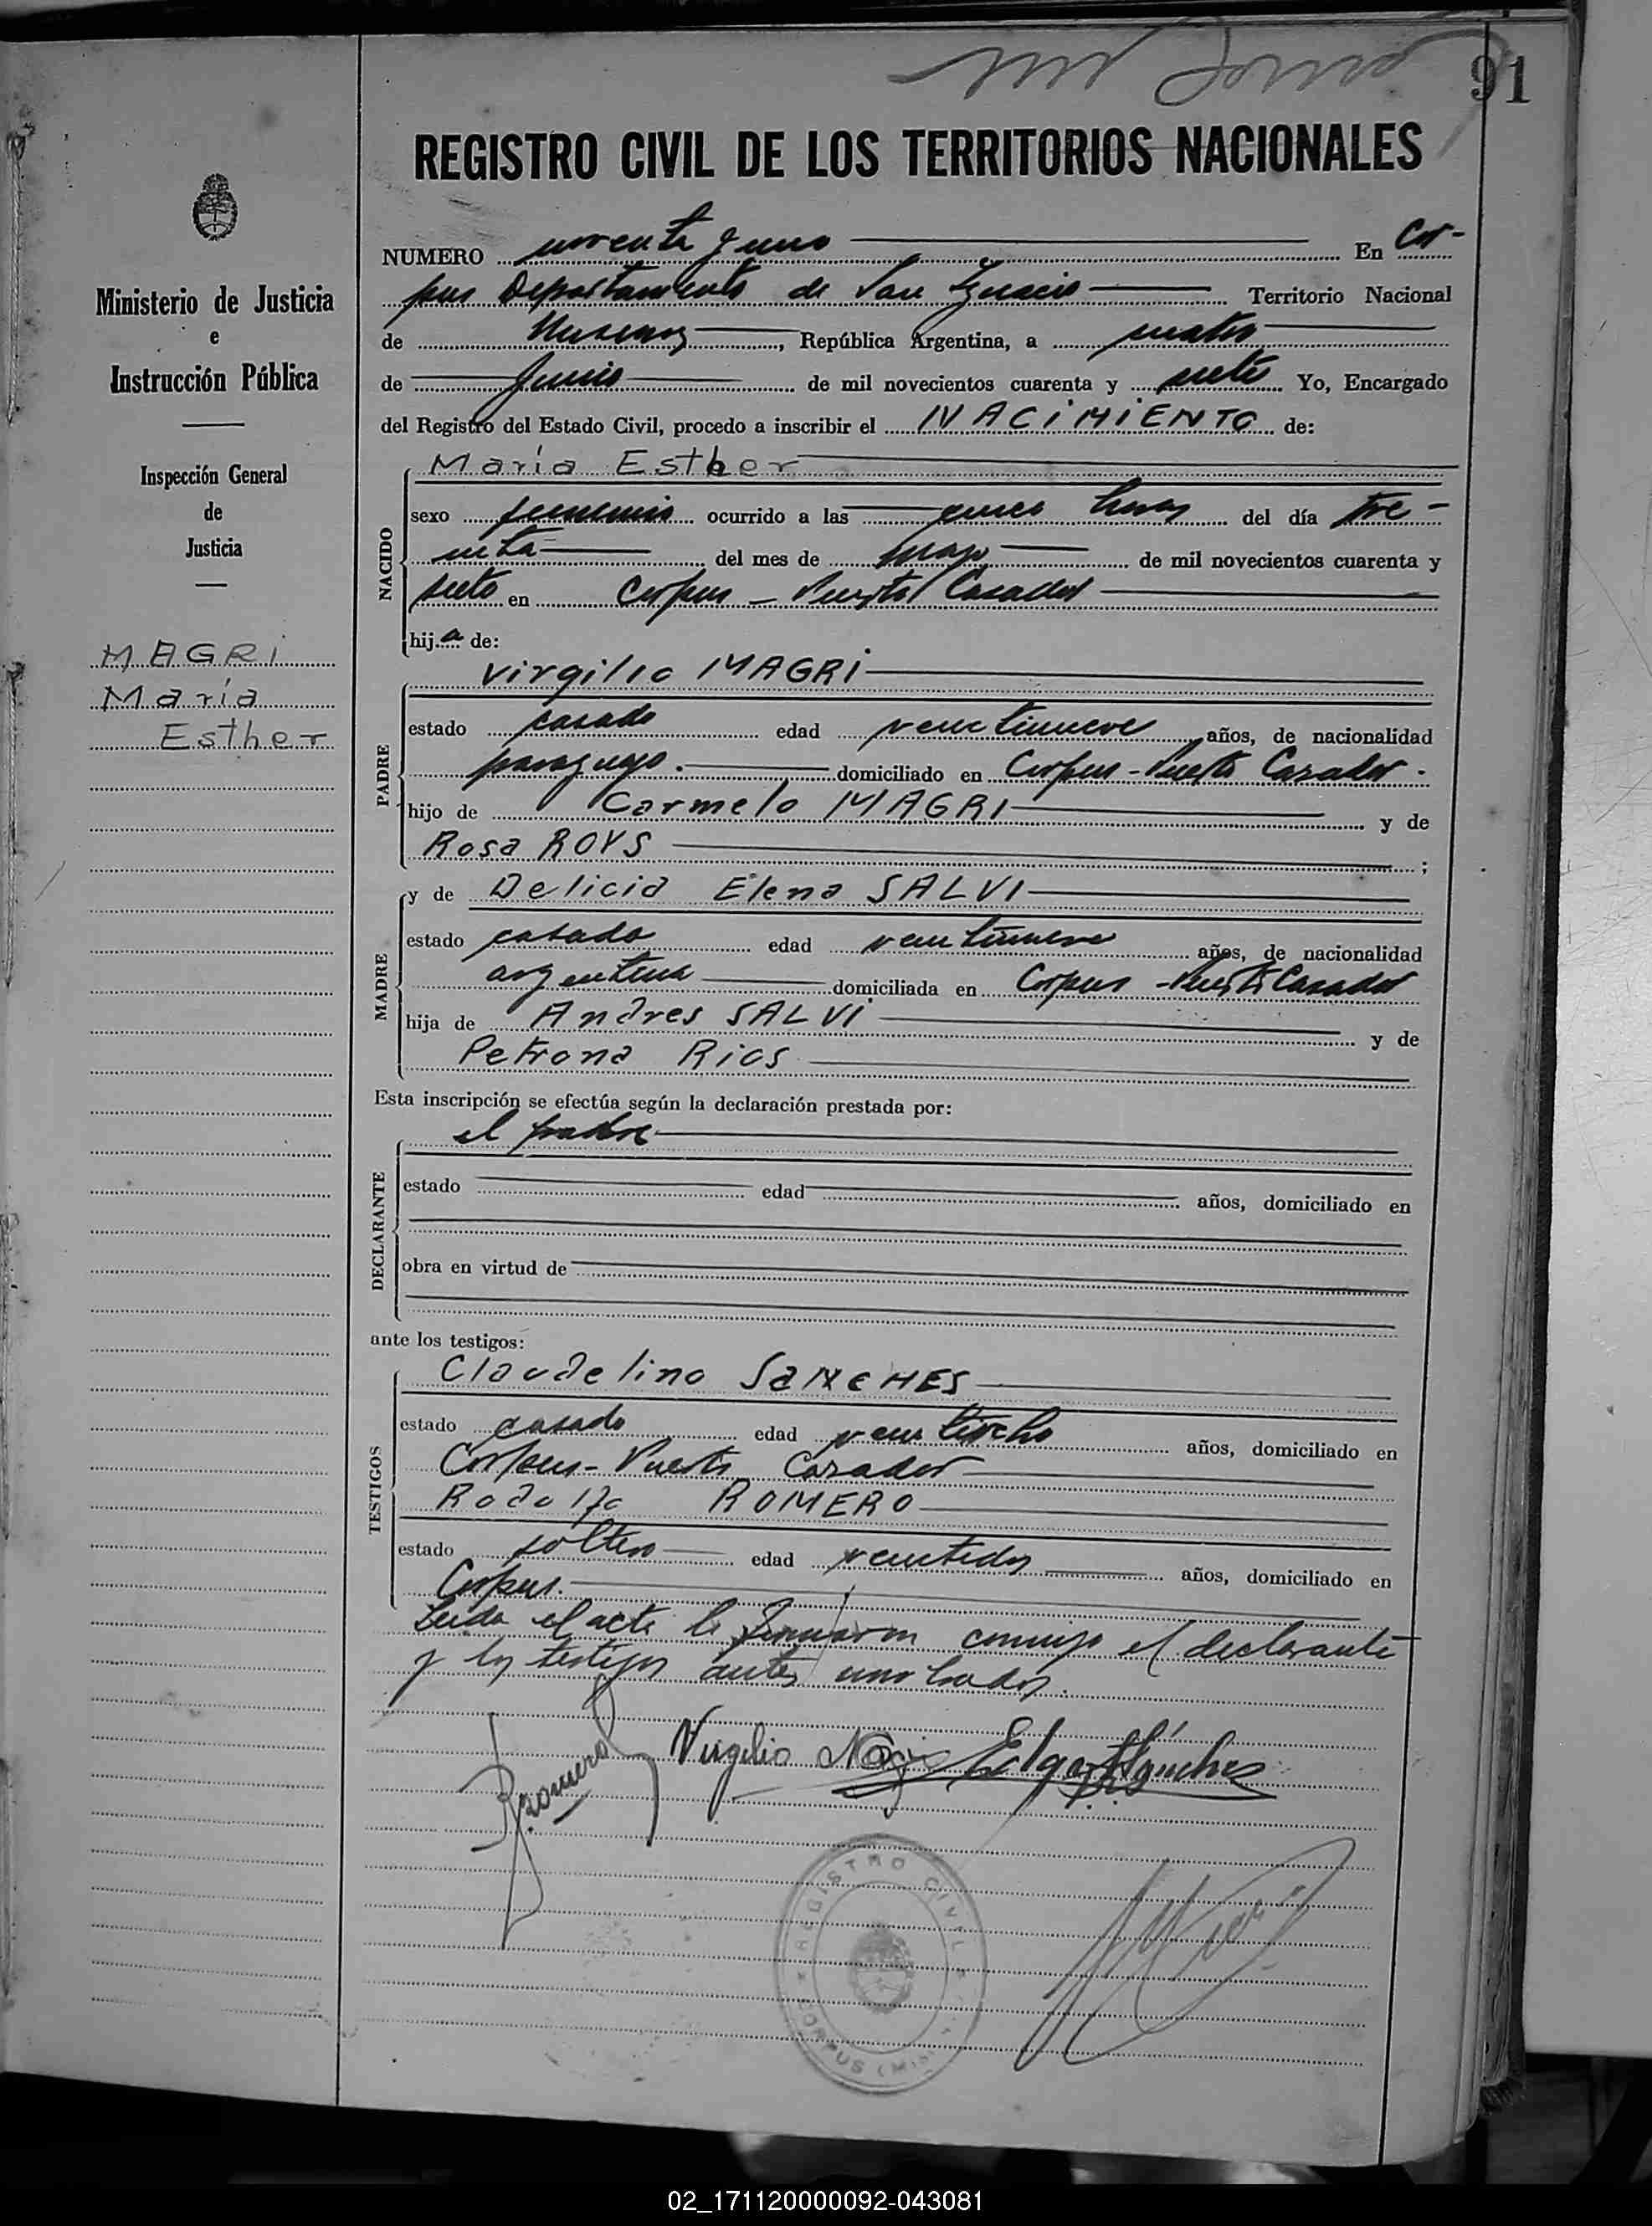 91
REGISTRO CIVIL DE LOS TERRITORIOS NACIONALES
Ministerio de Justicia
e
Instrucción Pública
Inspección General
de
Justicia
MAGRI
María
Esther
NUMERO noventa y uno En Cor-
pus Departamento de San Ignacio Territorio Nacional
de Misiones, República Argentina, a cuatro
de Junio de mil novecientos cuarenta y siete Yo, Encargado
del Registro del Estado Civil, procedo a inscribir el NACIMIENTO de:
NACIDO
María Esther
sexo femenino ocurrido a las cinco horas del día tre-
inta del mes de mayo de mil novecientos cuarenta y
siete en Corpus - Puerto Casador
hija de:
PADRE
Virgilio MAGRI
estado casado edad veintinueve años, de nacionalidad
paraguayo. domiciliado en Corpus - Puerto Casador.
hijo de Carmelo MAGRI y de
Rosa ROYS ;
MADRE
y de Delicia Elena SALVI
estado casada edad veintinueve años, de nacionalidad
argentina domiciliada en Corpus - Puerto Casador
hija de Andres SALVI y de
Petrona Rios
Esta inscripción se efectúa según la declaración prestada por:
DECLARANTE
el padre
estado edad años, domiciliado en
obra en virtud de
ante los testigos:
TESTIGOS
Claudelino SANCHES
estado casado edad veintiocho años, domiciliado en
Corpus - Puerto Casador
Rodolfo ROMERO
estado soltero edad veintidos años, domiciliado en
Corpus.
Leida el acta la firmaron conmigo el declarante
y los testigos antes nombrados.
Romero Virgilio Magri Sánches
REGISTRO CIVIL
CORPUS (Mis
02_171120000092-043081